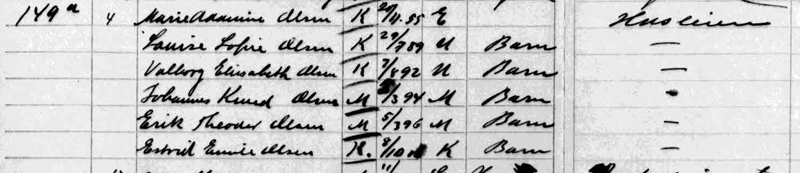 149a 4 Marie Olsen K 20/11.55 E Husleien
Louise Sofie Olsen K 29/7 89 U Barn —
Valborg Elisabeth Olsen K 7/8 92 U Barn —
Johannes Knud Olsen M /3 94 M Barn
Erik Theodor Olsen M 5/3 96 M Barn —
Estrid Emilie Olsen K. 8/10 K Barn —